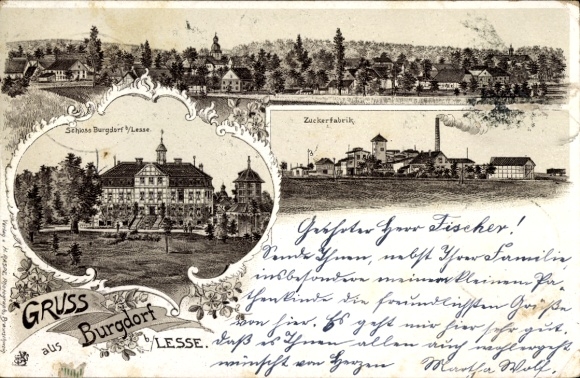 Schloss Burgdorf b/Lesse.
Zuckerfabrik.
Geehrter Herr Fischer!
Sende Ihnen, nebst Ihrer Familie
insbesondere meinem kleinen Pa-
thenkinde die freundlichsten Grüße
von hier. Es geht mir hier sehr gut.
daß es Ihnen allen auch wohlergeht
wünscht von Herzen
Martha Wolf.
GRUSS
aus
Burgdorf
b/LESSE.